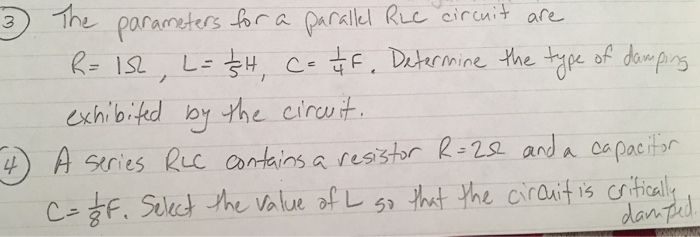 3 The parameters for a parallel RLC circuit are
R = 1Ω, L = 1/5 H, C = 1/4 F. Determine the type of damping
exhibited by the circuit.
4 A series RLC contains a resistor R = 2Ω and a capacitor
C = 1/8 F. Select the value of L so that the circuit is critically
damped.